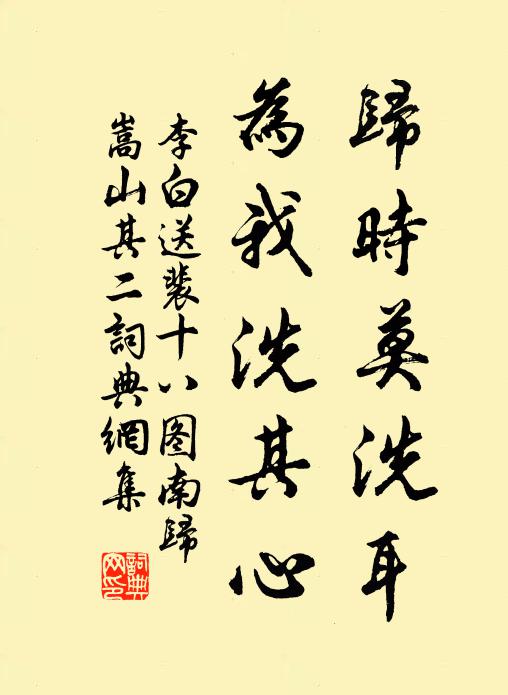 歸時莫洗耳
為我洗其心
李白送裴十八图南歸
嵩山其二詞典網集
詞典
网印